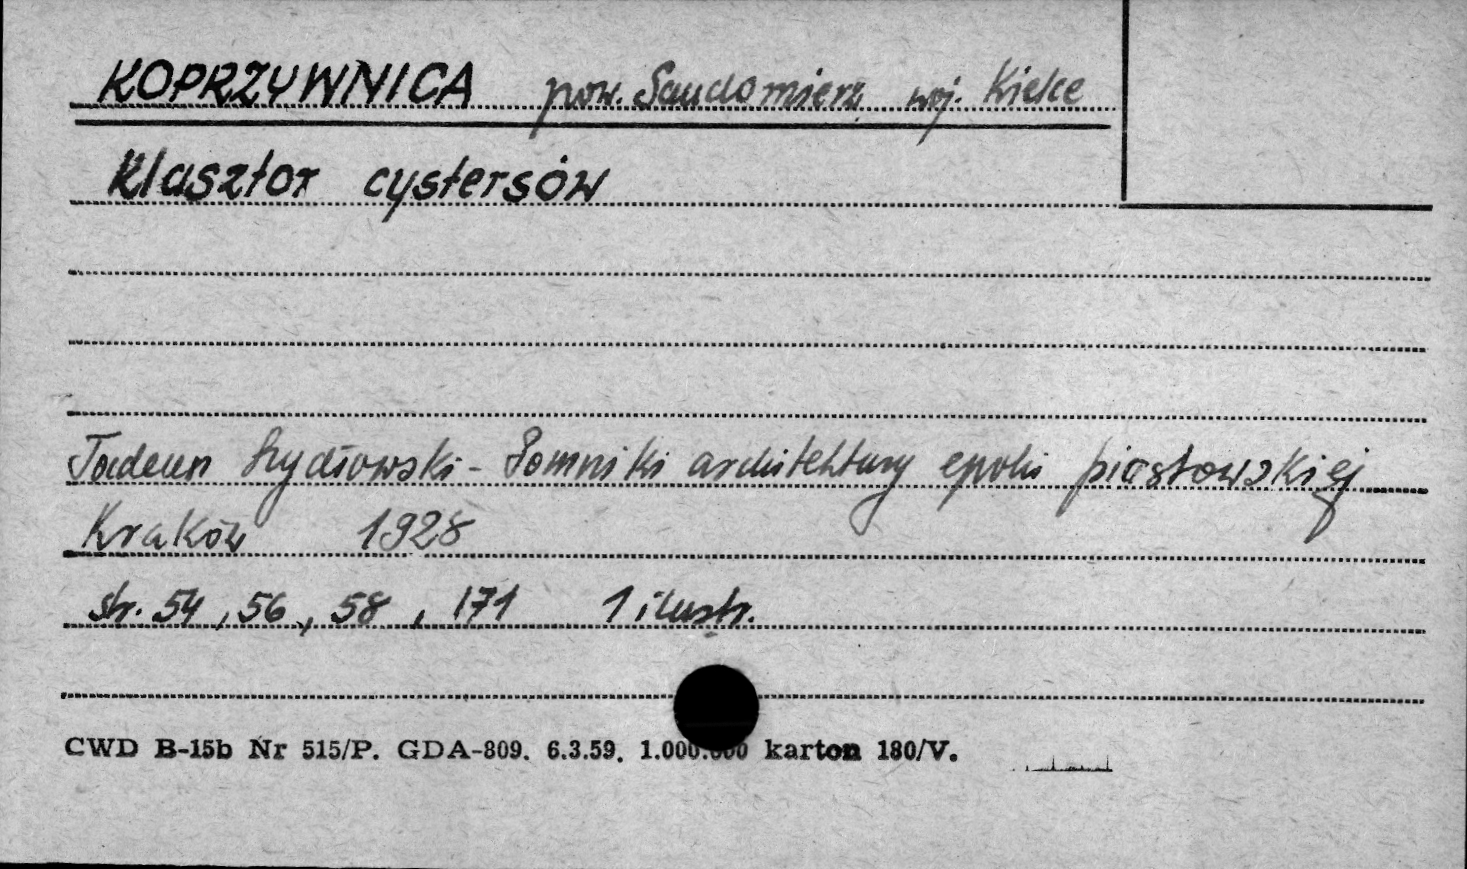 KOPRZYWNICA pow. Sandomierz woj. Kielce
Klasztor cystersów
Tadeusz Szydłowski - Pomniki architektury epoki piastowskiej
Kraków 1928
str. 54, 56, 58, 171 1 ilustr.
CWD B-15b Nr 515/P. GDA-809. 6.3.59. 1.000.000 karton 180/V.